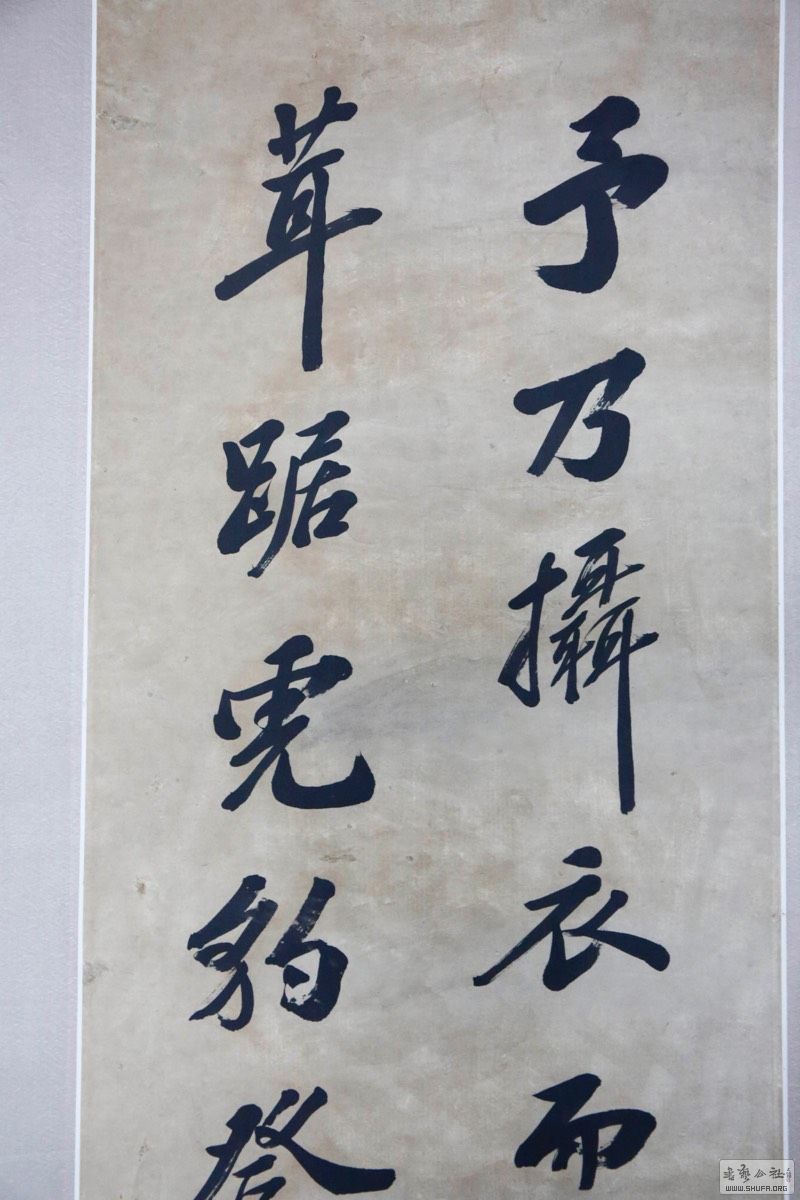 予乃攝衣而
茸踞虎豹登
書藝公社
WWW.SHUFA.ORG